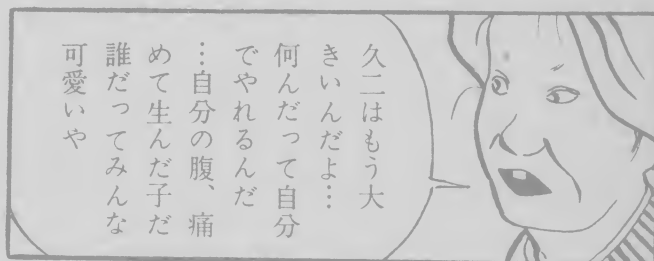 久二はもう大
きいんだよ…
何んだって自分
でやれるんだ
…自分の腹、痛
めて生んだ子だ
誰だってみんな
可愛いや